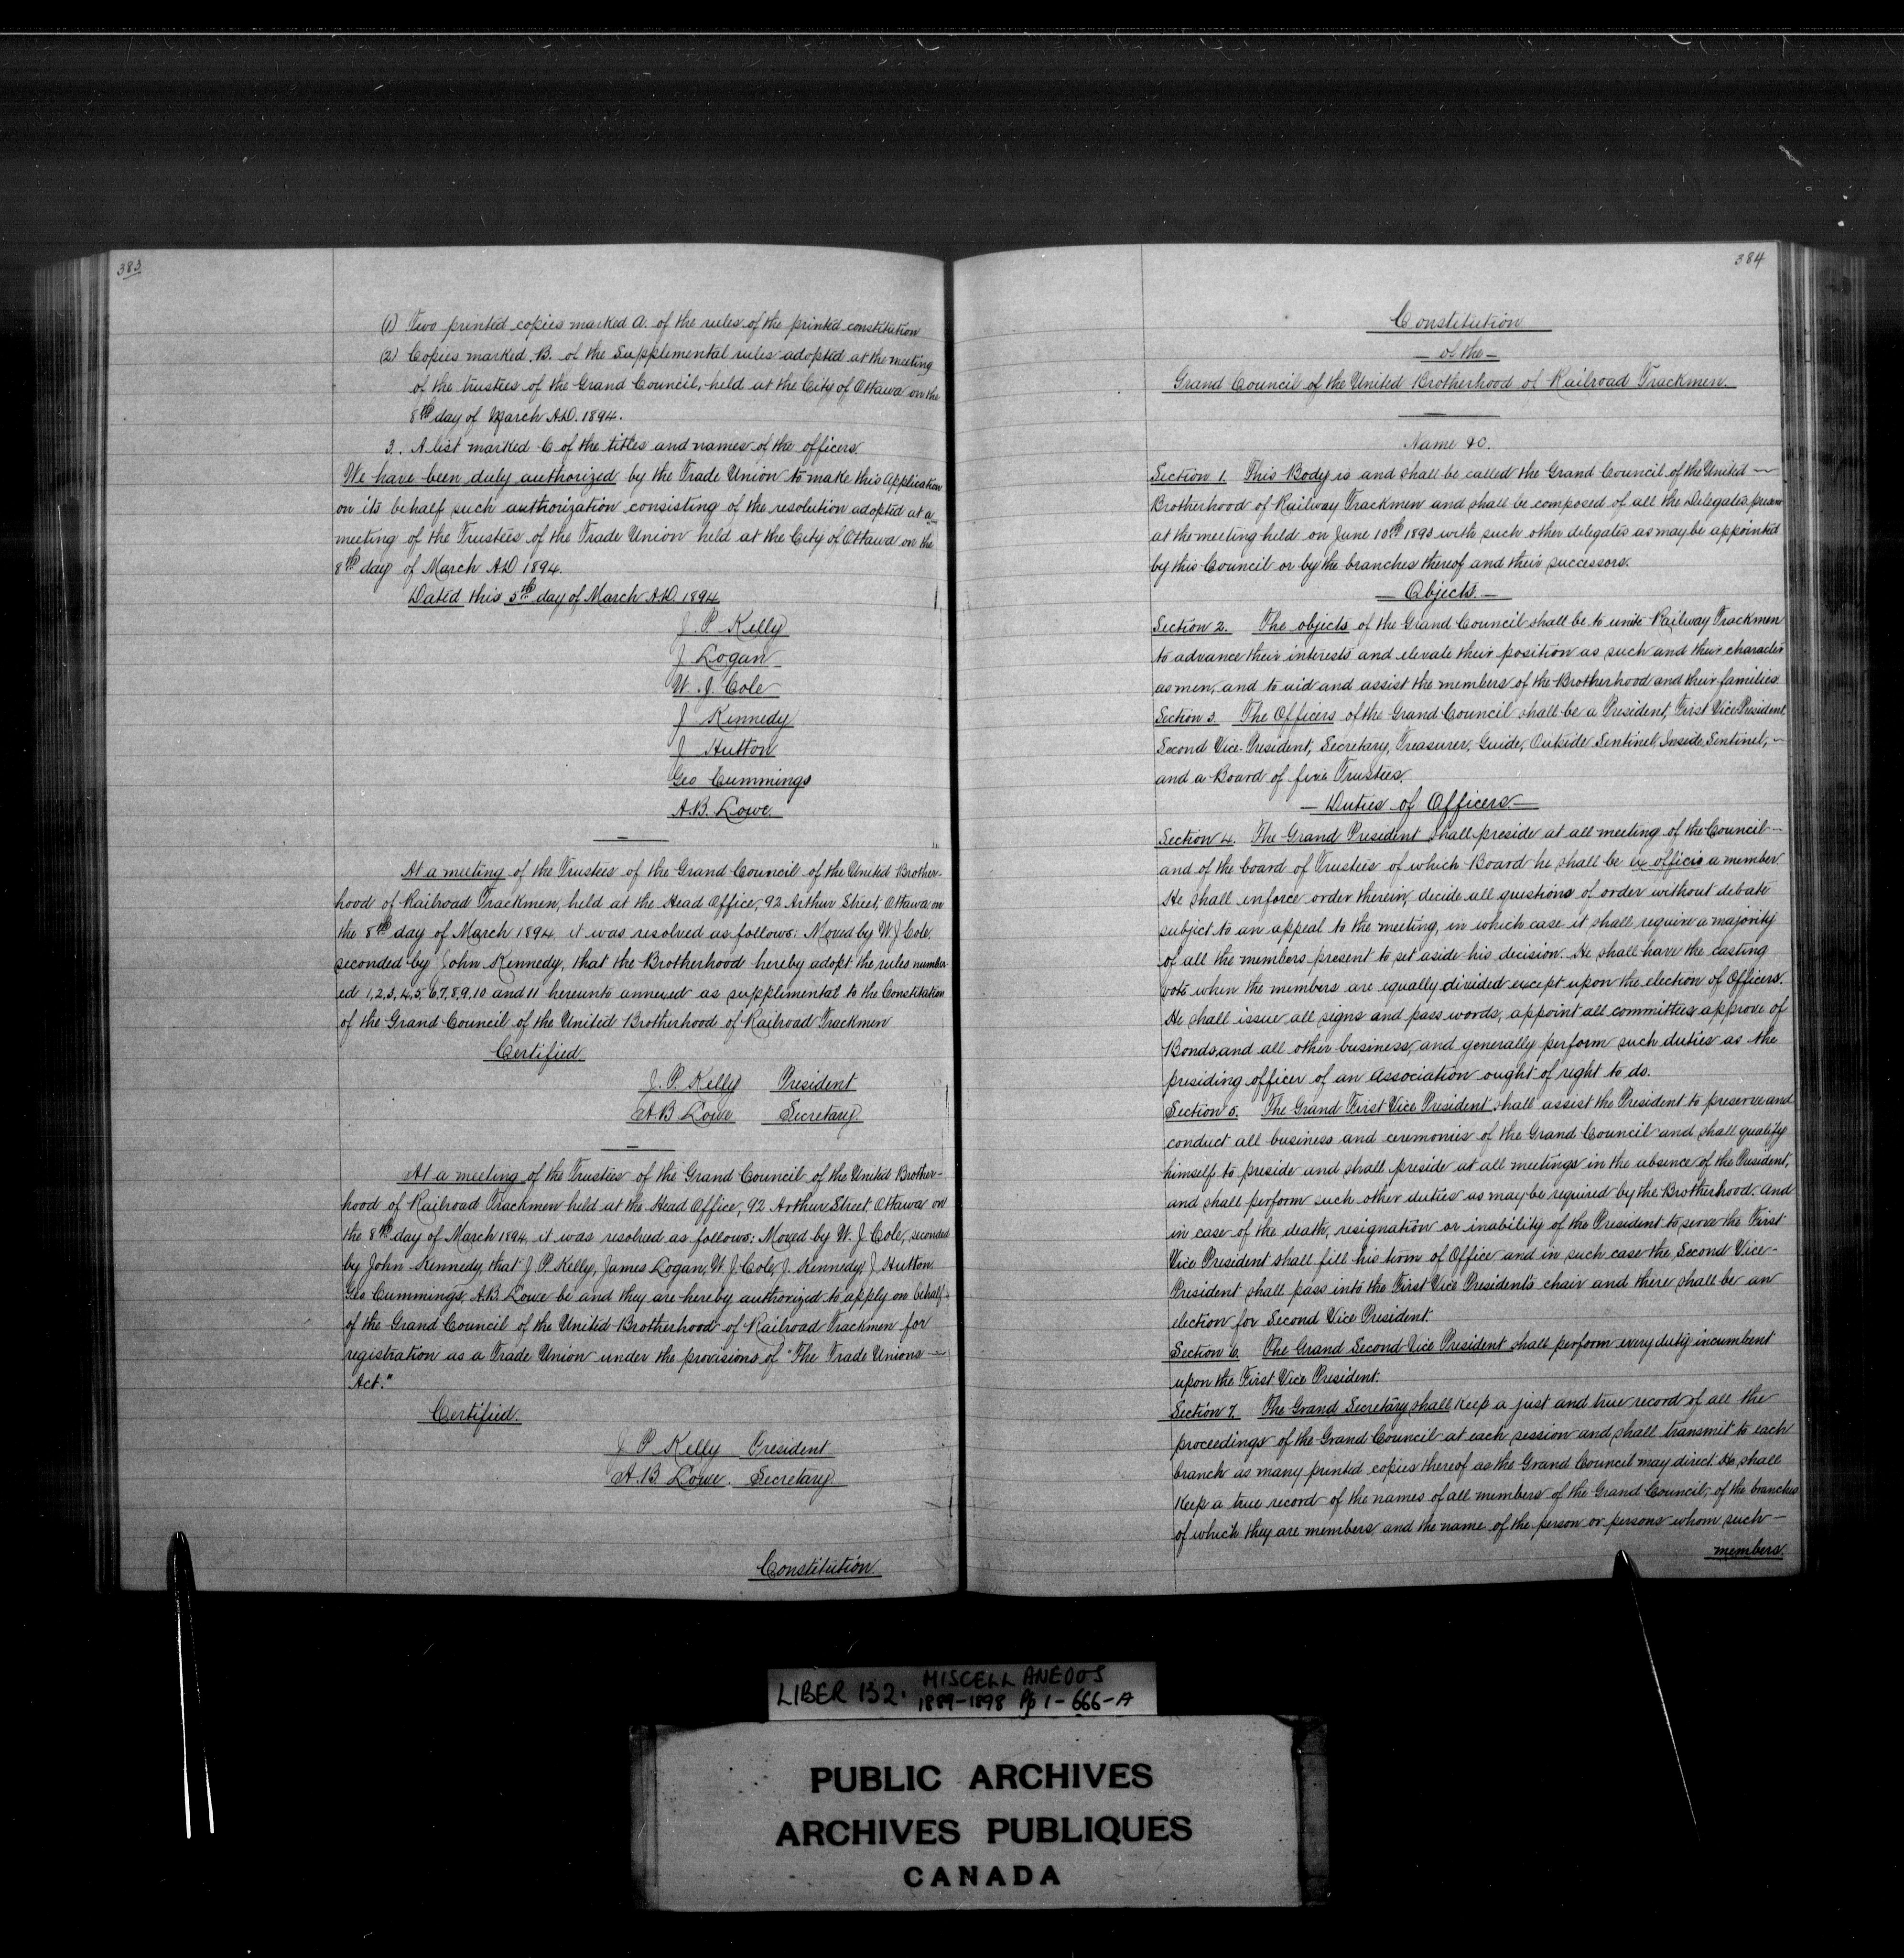 383
(1) Two printed copies marked A. of the rules of the printed constitution
(2) Copies marked B. of the Supplemental rules adopted at the meeting
of the trustees of the Grand Council, held at the City of Ottawa on the
8th day of March A.D. 1894.
3. A list marked C of the titles and names of the officers.
We have been duly authorized by the Trade Union to make this application
on its behalf such authorization consisting of the resolution adopted at a
meeting of the Trustees of the Trade Union held at the City of Ottawa on the
8th day of March A.D 1894.
Dated this 5th day of March A.D. 1894
J. P. Kelly
J Logan
W. J. Cole
J Kennedy
J Hutton
Geo Cummings
A.B. Lowe.
At a meeting of the Trustees of the Grand Council of the United Brother-
hood of Railroad Trackmen, held at the Head Office, 92 Arthur Street, Ottawa on
the 8th day of March 1894, it was resolved as follows: Moved by W. J. Cole,
seconded by John Kennedy, that the Brotherhood hereby adopt the rules number-
ed 1,2,3,4,5,6,7,8,9,10 and 11 hereunto annexed as supplimental to the Constitution
of the Grand Council of the United Brotherhood of Railroad Trackmen
Certified.
J. P. Kelly President
A.B Lowe Secretary
At a meeting of the Trustees of the Grand Council of the United Brother-
hood of Railroad Trackmen held at the Head Office, 92 Arthur Street, Ottawa on
the 8th day of March 1894, it was resolved as follows: Moved by W. J. Cole, seconded
by John Kennedy that J. P. Kelly, James Logan, W. J. Cole, J. Kennedy, J. Hutton
Geo Cummings, A.B. Lowe be and they are hereby authorized to apply on behalf
of the Grand Council of the United Brotherhood of Railroad Trackmen for
registration as a Trade Union under the provisions of "The Trade Unions
Act."
Certified.
J P Kelly President
A.B. Lowe. Secretary
Constitution.
384
Constitution
- of the -
Grand Council of the United Brotherhood of Railroad Trackmen.
Name &c.
Section 1. This Body is and shall be called the Grand Council of the United
Brotherhood of Railway Trackmen and shall be composed of all the Delegates present
at the meeting held on June 10th 1890 with such other delegates as may be appointed
by this Council or by the branches thereof and their successors.
- Objects. -
Section 2. The objects of the Grand Council shall be to unite Railway Trackmen
to advance their interests and elevate their position as such and their character
as men, and to aid and assist the members of the Brotherhood and their families
Section 3. The Officers of the Grand Council shall be a President, First Vice President
Second Vice-President, Secretary, Treasurer, Guide, Outside Sentinel, Inside Sentinel,
and a Board of five Trustees.
- Duties of Officers -
Section 4. The Grand President shall preside at all meeting of the Council
and of the board of Trustees of which Board he shall be ex officio a member
He shall enforce order therein, decide all questions of order without debate
subject to an appeal to the meeting, in which case it shall require a majority
of all the members present to set aside his decision. He shall have the casting
vote when the members are equally divided except upon the election of Officers.
He shall issue all signs and pass words, appoint all committees approve of
Bonds, and all other business, and generally perform such duties as the
presiding officer of an association ought of right to do.
Section 5. The Grand First Vice President shall assist the President to preserve and
conduct all business and ceremonies of the Grand Council and shall qualify
himself to preside and shall preside at all meetings in the absence of the President,
and shall perform such other duties as may be required by the Brotherhood. And
in case of the death, resignation or inability of the President to serve the First
Vice President shall fill his term of Office and in such case the Second Vice-
President shall pass into the First Vice President's chair and there shall be an
election for Second Vice President.
Section 6. The Grand Second Vice President shall perform every duty incumbent
upon the First Vice President.
Section 7. The Grand Secretary shall Keep a just and true record of all the
proceedings of the Grand Council at each session and shall transmit to each
branch as many printed copies thereof as the Grand Council may direct. He shall
Keep a true record of the names of all members of the Grand Council, of the branches
of which they are members, and the name of the person or persons whom such
members.
LIBER 132. MISCELLANEOUS
1889-1898 Pp 1-666-A
PUBLIC ARCHIVES
ARCHIVES PUBLIQUES
CANADA